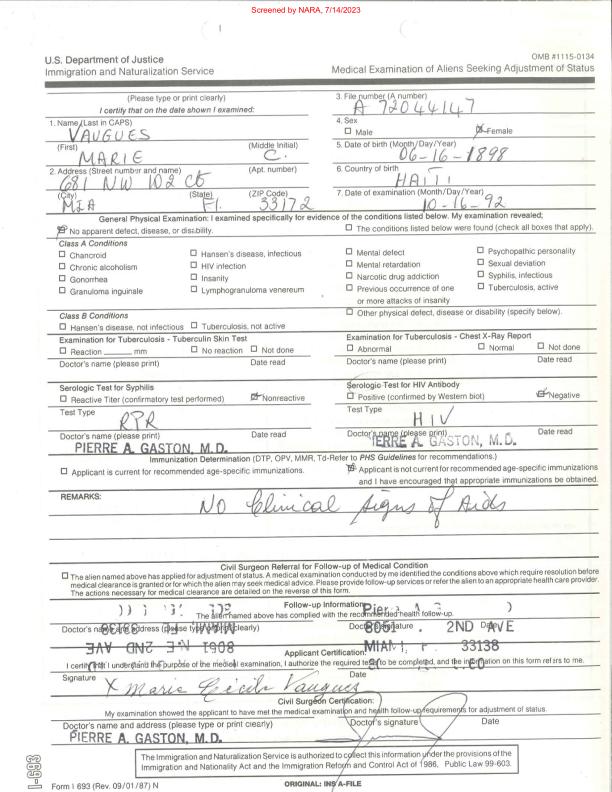 Screened by NARA, 7/14/2023
U.S. Department of Justice
Immigration and Naturalization Service
OMB #1115-0134
Medical Examination of Aliens Seeking Adjustment of Status
(Please type or print clearly)
I certify that on the date shown I examined:
3. File number (A number)
A 72044147
1. Name (Last in CAPS)
VAUGUES
4. Sex
☐ Male ☒ Female
(First) (Middle Initial)
MARIE C.
5. Date of birth (Month/Day/Year)
06-16-1898
2. Address (Street number and name) (Apt. number)
681 NW 102 Ct
6. Country of birth
HAITI
(City) (State) (ZIP Code)
MIA Fl. 33172
7. Date of examination (Month/Day/Year)
10-16-92
General Physical Examination: I examined specifically for evidence of the conditions listed below. My examination revealed;
☒ No apparent defect, disease, or disability.
☐ The conditions listed below were found (check all boxes that apply).
Class A Conditions
☐ Chancroid
☐ Chronic alcoholism
☐ Gonorrhea
☐ Granuloma inguinale
☐ Hansen's disease, infectious
☐ HIV infection
☐ Insanity
☐ Lymphogranuloma venereum
☐ Mental defect
☐ Mental retardation
☐ Narcotic drug addiction
☐ Previous occurrence of one
or more attacks of insanity
☐ Psychopathic personality
☐ Sexual deviation
☐ Syphilis, infectious
☐ Tuberculosis, active
Class B Conditions
☐ Hansen's disease, not infectious ☐ Tuberculosis, not active
☐ Other physical defect, disease or disability (specify below).
Examination for Tuberculosis - Tuberculin Skin Test
☐ Reaction ______ mm ☐ No reaction ☐ Not done
Doctor's name (please print) Date read
Examination for Tuberculosis - Chest X-Ray Report
☐ Abnormal ☐ Normal ☐ Not done
Doctor's name (please print) Date read
Serologic Test for Syphilis
☐ Reactive Titer (confirmatory test performed) ☒ Nonreactive
Test Type
RPR
Doctor's name (please print) Date read
PIERRE A. GASTON, M.D.
Serologic Test for HIV Antibody
☐ Positive (confirmed by Western biot) ☒ Negative
Test Type
HIV
Doctor's name (please print) Date read
PIERRE A. GASTON, M.D.
Immunization Determination (DTP, OPV, MMR, Td-Refer to PHS Guidelines for recommendations.)
☐ Applicant is current for recommended age-specific immunizations.
☒ Applicant is not current for recommended age-specific immunizations
and I have encouraged that appropriate immunizations be obtained.
REMARKS:
No Clinical Signs of Aids
Civil Surgeon Referral for Follow-up of Medical Condition
☐ The alien named above has applied for adjustment of status. A medical examination conducted by me identified the conditions above which require resolution before
medical clearance is granted or for which the alien may seek medical advice. Please provide follow-up services or refer the alien to an appropriate health care provider.
The actions necessary for medical clearance are detailed on the reverse of this form.
Follow-up Information
The alien named above has complied with the recommended health follow-up.
Doctor's name and address (please type or print clearly) Doctor's signature Date
8061 N.E. 2ND AVE
2ND AVE
MIAMI, 33138
Applicant Certification:
I certify that I understand the purpose of the medical examination, I authorize the required tests to be completed, and the information on this form refers to me.
Signature Date
X Marie Cecile Vaugues
Civil Surgeon Certification:
My examination showed the applicant to have met the medical examination and health follow-up requirements for adjustment of status.
Doctor's name and address (please type or print clearly) Doctor's signature Date
PIERRE A. GASTON, M.D.
The Immigration and Naturalization Service is authorized to collect this information under the provisions of the
Immigration and Nationality Act and the Immigration Reform and Control Act of 1986, Public Law 99-603.
I-693
Form I 693 (Rev. 09/01/87) N
ORIGINAL: INS A-FILE